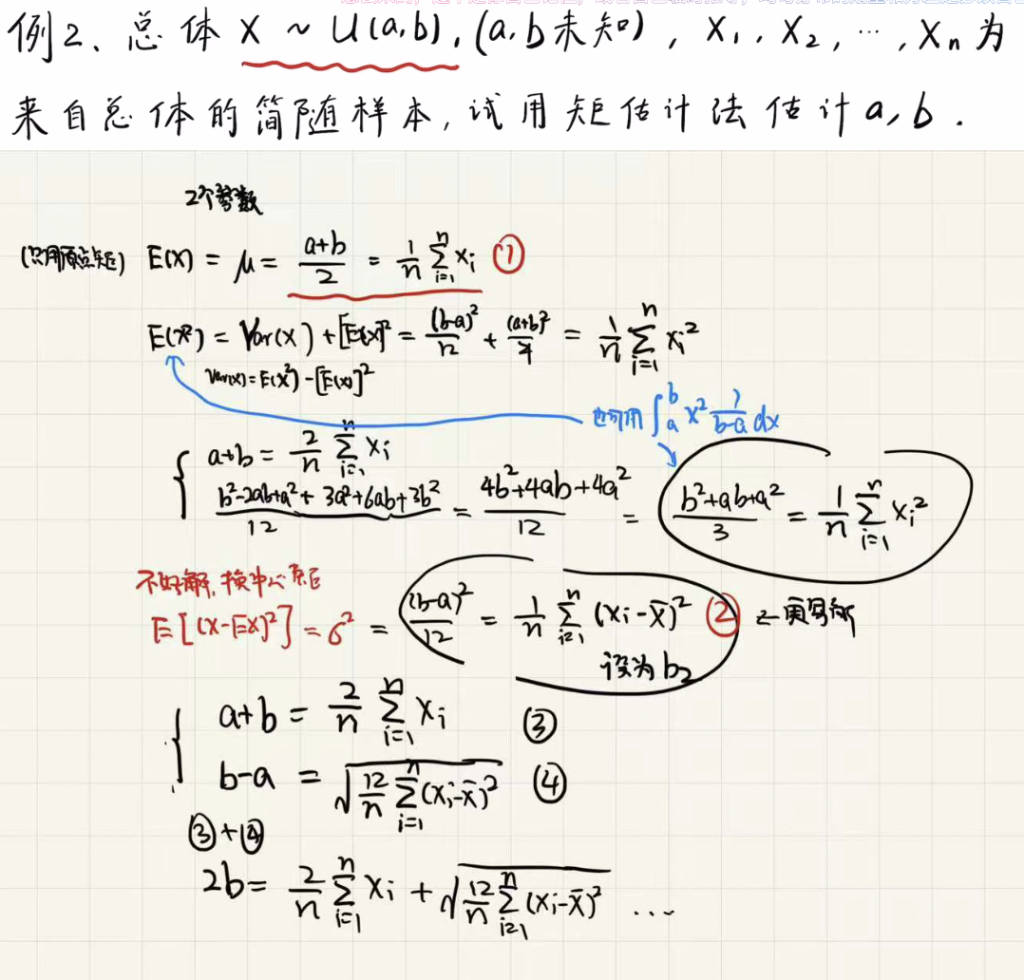 例2、总体 X ~ U(a,b), (a,b未知), X₁, X₂, …, Xₙ 为
来自总体的简随样本, 试用矩估计法估计 a, b .
2个参数
(只用原点矩) E(X) = μ = \frac{a+b}{2} = \frac{1}{n} \sum_{i=1}^{n} x_i ①
E(X²) = Var(X) + [E(X)]² = \frac{(b-a)^2}{12} + \frac{(a+b)^2}{4} = \frac{1}{n} \sum_{i=1}^{n} x_i^2
Var(X) = E(X²) - [E(X)]²
也可用 \int_a^b x^2 \frac{1}{b-a} dx
a+b = \frac{2}{n} \sum_{i=1}^{n} x_i
\frac{b^2-2ab+a^2+3a^2+6ab+3b^2}{12} = \frac{4b^2+4ab+4a^2}{12} = \frac{b^2+ab+a^2}{3} = \frac{1}{n} \sum_{i=1}^{n} x_i^2
不好解, 换中心矩
E[(X-EX)²] = σ² = \frac{(b-a)^2}{12} = \frac{1}{n} \sum_{i=1}^{n} (x_i-\bar{x})^2 ② ← 更易解
设为 b₂
a+b = \frac{2}{n} \sum_{i=1}^{n} x_i ③
b-a = \sqrt{\frac{12}{n} \sum_{i=1}^{n} (x_i-\bar{x})^2} ④
③+④
2b = \frac{2}{n} \sum_{i=1}^{n} x_i + \sqrt{\frac{12}{n} \sum_{i=1}^{n} (x_i-\bar{x})^2} ...